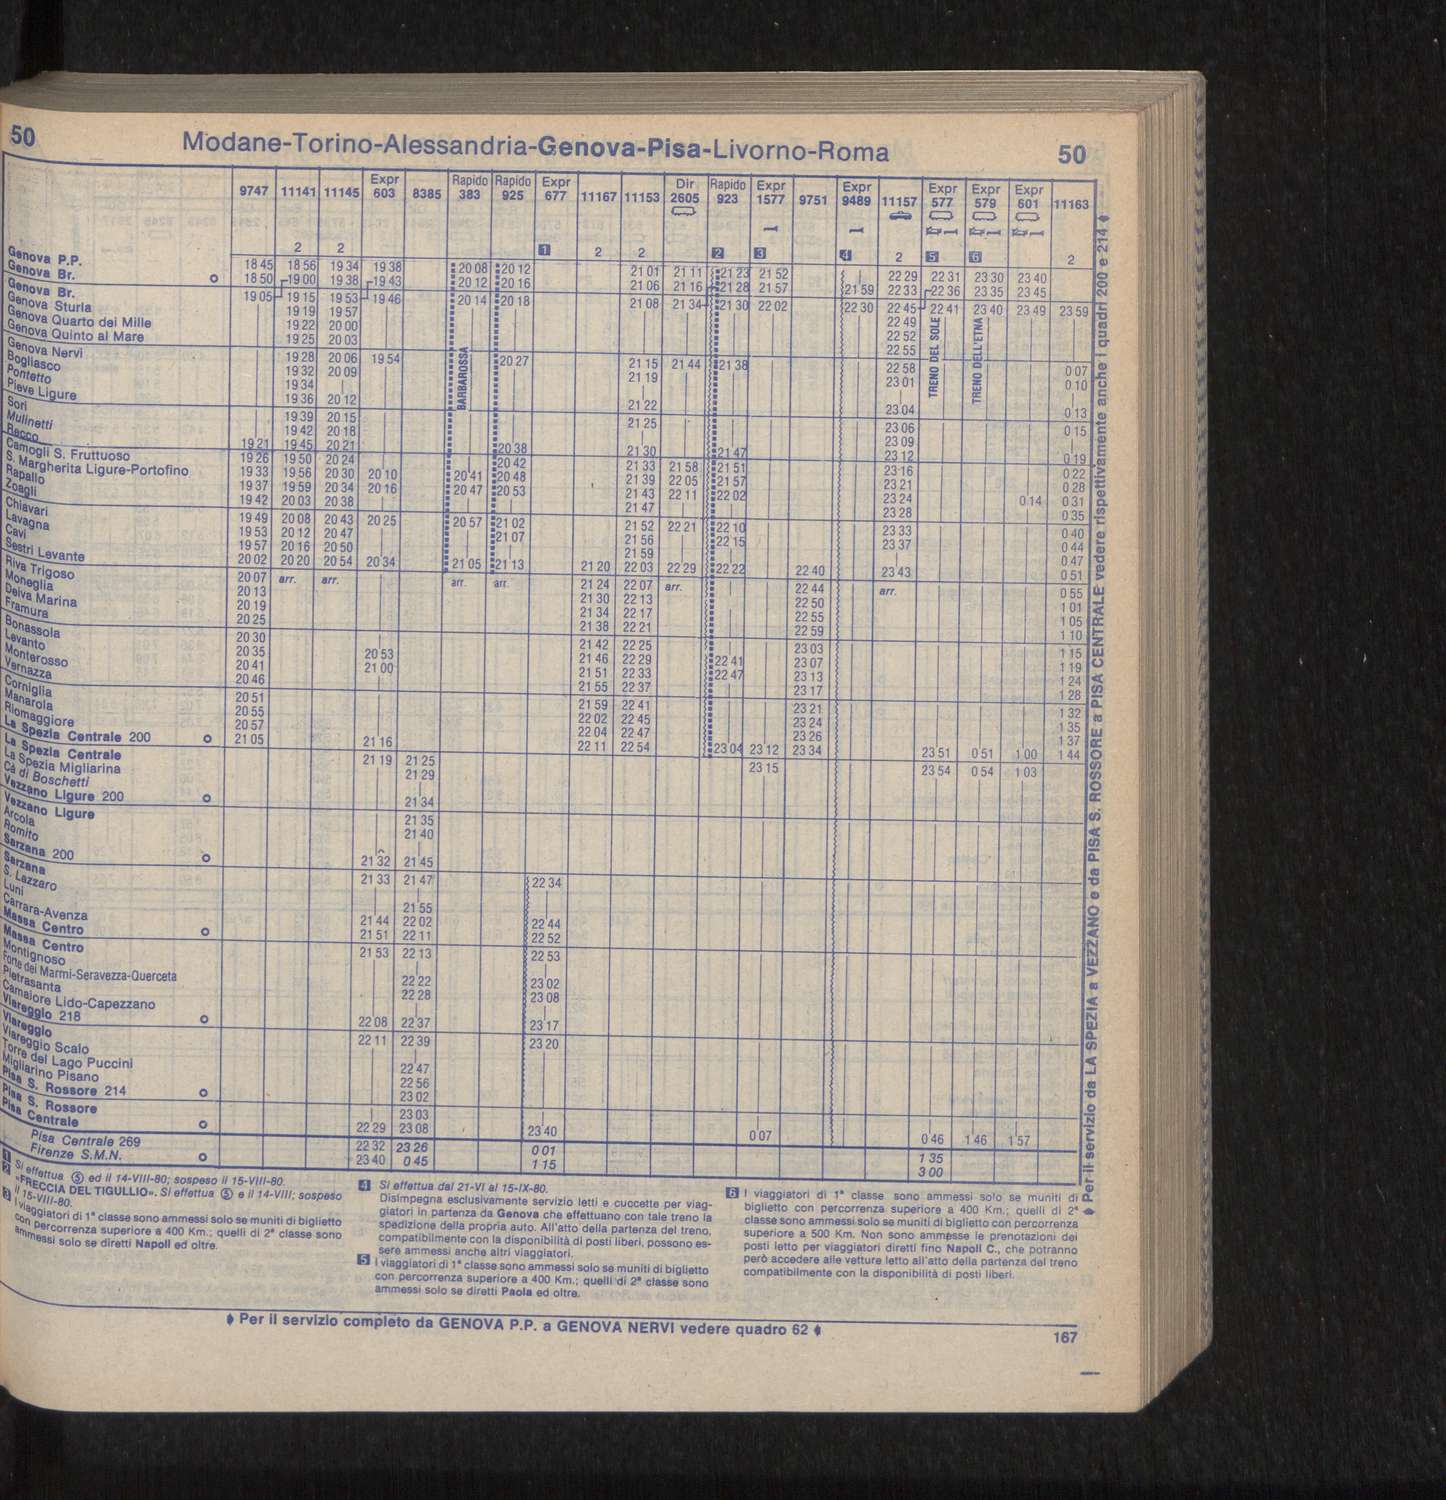 50 Modane-Torino-Alessandria-Genova-Pisa-Livorno-Roma 50
9747 11141 11145 Expr 603 8385 Rapido 383 Rapido 925 Expr 677 11167 11153 Dir 2605 Rapido 923 Expr 1577 9751 Expr 9489 11157 Expr 577 Expr 579 Expr 601 11163
2 2 1 2 2 2 3 4 2 5 6 2
Genova P.P. 18 45 18 56 19 34 19 38 20 08 20 12 21 01 21 11 21 23 21 52 22 29 22 31 23 30 23 40
Genova Br. 18 50 19 00 19 38 19 43 20 12 20 16 21 06 21 16 21 28 21 57 21 59 22 33 22 36 23 35 23 45
Genova Br. 19 05 19 15 19 53 19 46 20 14 20 18 21 08 21 34 21 30 22 02 22 30 22 45 22 41 23 40 23 49 23 59
Genova Sturla 19 19 19 57 22 49
Genova Quarto dei Mille 19 22 20 00 22 52
Genova Quinto al Mare 19 25 20 03 22 55
Genova Nervi 19 28 20 06 19 54 20 27 21 15 21 44 21 38 22 58 0 07
Bogliasco 19 32 20 09 21 19 23 01 0 10
Pontetto 19 34
Pieve Ligure 19 36 20 12 21 22 23 04 0 13
Sori 19 39 20 15 21 25 23 06 0 15
Mulinetti 19 42 20 18 23 09
Recco 19 21 19 45 20 21 20 38 21 30 21 47 23 12 0 19
Camogli S. Fruttuoso 19 26 19 50 20 24 20 42 21 33 21 58 21 51 23 16 0 22
S. Margherita Ligure-Portofino 19 33 19 56 20 30 20 10 20 41 20 48 21 39 22 05 21 57 23 21 0 28
Rapallo 19 37 19 59 20 34 20 16 20 47 20 53 21 43 22 11 22 02 23 24 0 14 0 31
Zoagli 19 42 20 03 20 38 21 47 23 28 0 35
Chiavari 19 49 20 08 20 43 20 25 20 57 21 02 21 52 22 21 22 10 23 33 0 40
Lavagna 19 53 20 12 20 47 21 07 21 56 22 15 23 37 0 44
Cavi 19 57 20 16 20 50 21 59 0 47
Sestri Levante 20 02 20 20 20 54 20 34 21 05 21 13 21 20 22 03 22 29 22 22 22 40 23 43 0 51
Riva Trigoso 20 07 arr. arr. arr. arr. 21 24 22 07 arr. 22 44 arr. 0 55
Moneglia 20 13 21 30 22 13 22 50 1 01
Deiva Marina 20 19 21 34 22 17 22 55 1 05
Framura 20 25 21 38 22 21 22 59 1 10
Bonassola 20 30 21 42 22 25 23 03 1 15
Levanto 20 35 20 53 21 46 22 29 22 41 23 07 1 19
Monterosso 20 41 21 00 21 51 22 33 22 47 23 13 1 24
Vernazza 20 46 21 55 22 37 23 17 1 28
Corniglia 20 51 21 59 22 41 23 21 1 32
Manarola 20 55 22 02 22 45 23 24 1 35
Riomaggiore 20 57 22 04 22 47 23 26 1 37
La Spezia Centrale 200 21 05 21 16 22 11 22 54 23 04 23 12 23 34 23 51 0 51 1 00 1 44
La Spezia Centrale 21 19 21 25 23 15 23 54 0 54 1 03
La Spezia Migliarina 21 29
Cà di Boschetti
Vezzano Ligure 200 21 34
Vezzano Ligure 21 35
Arcola 21 40
Romito
Sarzana 200 21 32 21 45
Sarzana 21 33 21 47 22 34
S. Lazzaro
Luni 21 55
Carrara-Avenza 21 44 22 02 22 44
Massa Centro 21 51 22 11 22 52
Massa Centro 21 53 22 13 22 53
Montignoso
Forte dei Marmi-Seravezza-Querceta 22 22 23 02
Pietrasanta 22 28 23 08
Camaiore Lido-Capezzano
Viareggio 218 22 08 22 37 23 17
Viareggio 22 11 22 39 23 20
Viareggio Scalo
Torre del Lago Puccini 22 47
Migliarino Pisano 22 56
Pisa S. Rossore 214 23 02
Pisa S. Rossore 23 03
Pisa Centrale 22 29 23 08 23 40 0 07 0 46 1 46 1 57
Pisa Centrale 269 22 32 23 26 0 01 1 35
Firenze S.M.N. 23 40 0 45 1 15 3 00
BARBAROSSA
TRENO DEL SOLE
TRENO DELL'ETNA
1 Si effettua ⑤ ed il 14-VIII-80; sospeso il 15-VIII-80.
2 «FRECCIA DEL TIGULLIO». Si effettua ⑤ e il 14-VIII; sospeso
il 15-VIII-80.
3 I viaggiatori di 1ª classe sono ammessi solo se muniti di biglietto
con percorrenza superiore a 400 Km.; quelli di 2ª classe sono
ammessi solo se diretti Napoli ed oltre.
4 Si effettua dal 21-VI al 15-IX-80.
Disimpegna esclusivamente servizio letti e cuccette per viag-
giatori in partenza da Genova che effettuano con tale treno la
spedizione della propria auto. All'atto della partenza del treno,
compatibilmente con la disponibilità di posti liberi, possono es-
sere ammessi anche altri viaggiatori.
5 I viaggiatori di 1ª classe sono ammessi solo se muniti di biglietto
con percorrenza superiore a 400 Km.; quelli di 2ª classe sono
ammessi solo se diretti Paola ed oltre.
6 I viaggiatori di 1ª classe sono ammessi solo se muniti di
biglietto con percorrenza superiore a 400 Km.; quelli di 2ª
classe sono ammessi solo se muniti di biglietto con percorrenza
superiore a 500 Km. Non sono ammesse le prenotazioni dei
posti letto per viaggiatori diretti fino Napoli C., che potranno
però accedere alle vetture letto all'atto della partenza del treno
compatibilmente con la disponibilità di posti liberi.
Per il servizio da LA SPEZIA a VEZZANO e da PISA S. ROSSORE a PISA CENTRALE vedere rispettivamente anche i quadri 200 e 214
Per il servizio completo da GENOVA P.P. a GENOVA NERVI vedere quadro 62
167